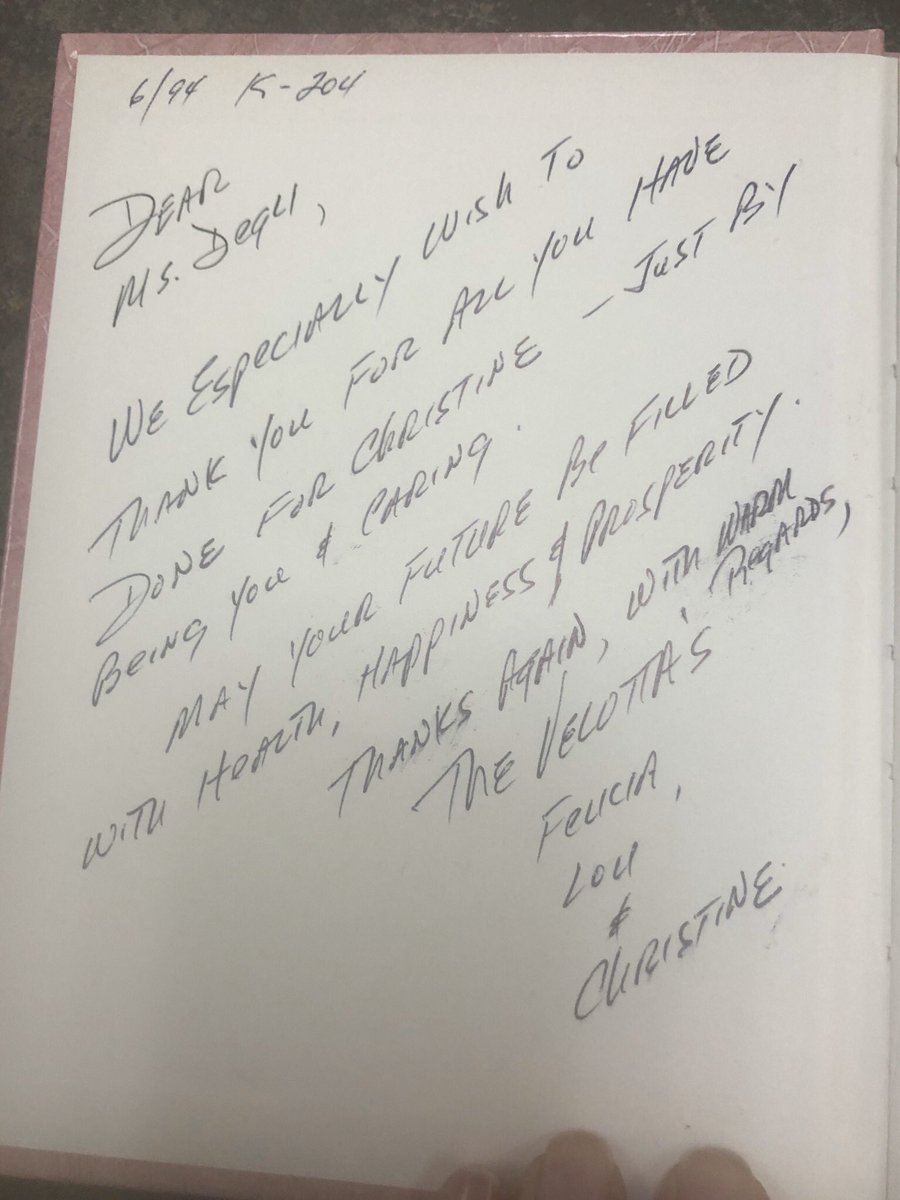 6/94 K-204
DEAR
MS. DEGLI,
WE ESPECIALLY WISH TO
THANK YOU FOR ALL YOU HAVE
DONE FOR CHRISTINE - JUST BY
BEING YOU & CARING.
MAY YOUR FUTURE BE FILLED
WITH HEALTH, HAPPINESS & PROSPERITY.
THANKS AGAIN, WITH WARM
REGARDS,
THE VELOTTA'S
FELICIA,
LOU
&
CHRISTINE